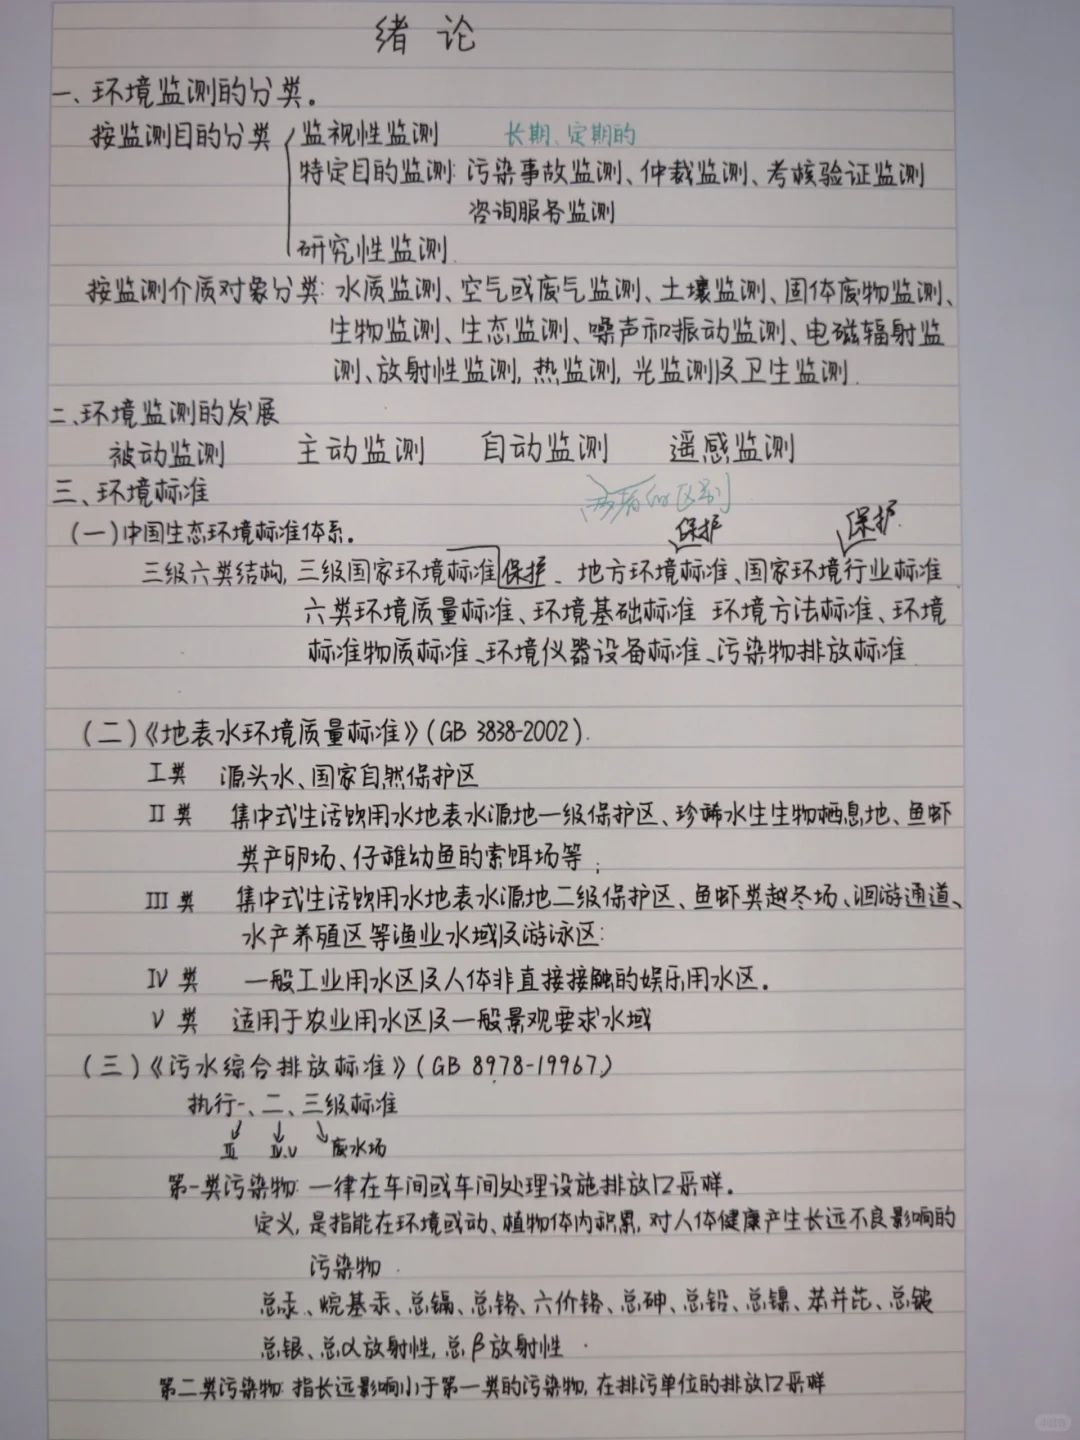 绪论
一、环境监测的分类。
按监测目的分类 监视性监测 长期、定期的
特定目的监测: 污染事故监测、仲裁监测、考核验证监测
咨询服务监测
研究性监测.
按监测介质对象分类: 水质监测、空气或废气监测、土壤监测、固体废物监测、
生物监测、生态监测、噪声和振动监测、电磁辐射监
测、放射性监测, 热监测, 光监测及卫生监测.
二、环境监测的发展
被动监测 主动监测 自动监测 遥感监测
三、环境标准
两者的区别
(一)中国生态环境标准体系。
保护 保护.
三级六类结构, 三级国家环境标准保护、地方环境标准、国家环境行业标准.
六类环境质量标准、环境基础标准 环境方法标准、环境
标准物质标准、环境仪器设备标准、污染物排放标准.
(二)《地表水环境质量标准》(GB 3838-2002).
I类 源头水、国家自然保护区
II类 集中式生活饮用水地表水源地一级保护区、珍稀水生生物栖息地、鱼虾
类产卵场、仔稚幼鱼的索饵场等;
III类 集中式生活饮用水地表水源地二级保护区、鱼虾类越冬场、洄游通道、
水产养殖区等渔业水域及游泳区:
IV类 一般工业用水区及人体非直接接触的娱乐用水区。
V类 适用于农业用水区及一般景观要求水域
(三)《污水综合排放标准》(GB 8978-19967)
执行一、二、三级标准
III IV.V 废水场
第一类污染物: 一律在车间或车间处理设施排放口采样。
定义, 是指能在环境或动、植物体内积累, 对人体健康产生长远不良影响的
污染物.
总汞、烷基汞、总镉、总铬、六价铬、总砷、总铅、总镍、苯并芘、总铍
总银、总α放射性, 总β放射性.
第二类污染物: 指长远影响小于第一类的污染物, 在排污单位的排放口采样